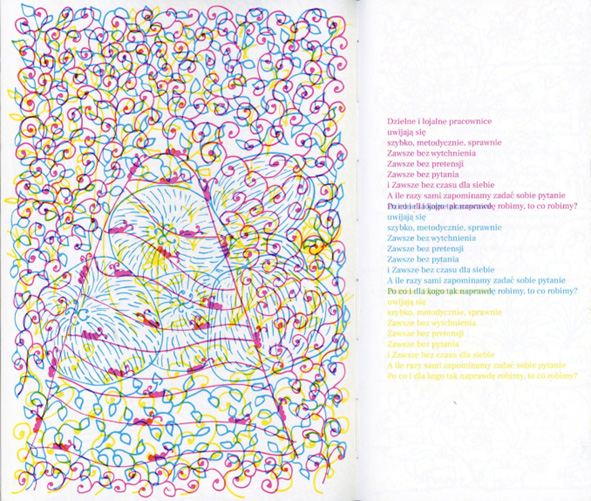 Dzielne i lojalne pracownice
uwijają się
szybko, metodycznie, sprawnie
Zawsze bez wytchnienia
Zawsze bez pretensji
Zawsze bez pytania
i Zawsze bez czasu dla siebie
A ile razy sami zapominamy zadać sobie pytanie
Po co i dla kogo tak naprawdę robimy, to co robimy?
uwijają się
szybko, metodycznie, sprawnie
Zawsze bez wytchnienia
Zawsze bez pretensji
Zawsze bez pytania
i Zawsze bez czasu dla siebie
A ile razy sami zapominamy zadać sobie pytanie
Po co i dla kogo tak naprawdę robimy, to co robimy?
uwijają się
szybko, metodycznie, sprawnie
Zawsze bez wytchnienia
Zawsze bez pretensji
Zawsze bez pytania
i Zawsze bez czasu dla siebie
A ile razy sami zapominamy zadać sobie pytanie
Po co i dla kogo tak naprawdę robimy, to co robimy?